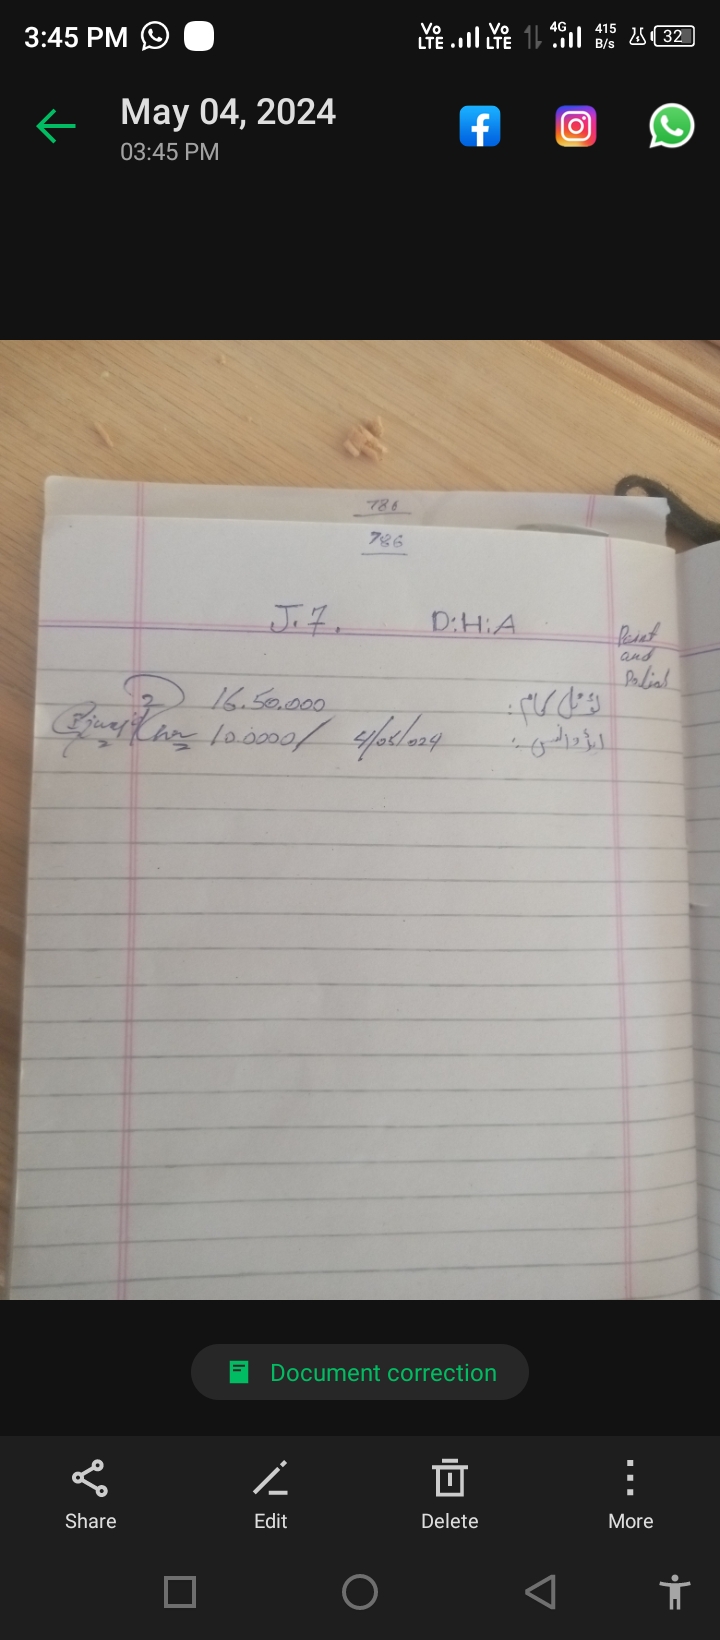 3:45 PM
Vo LTE Vo LTE 4G 415 B/s 32
May 04, 2024
03:45 PM
786
786
J.7. D:H:A
Paint
and
Polish
16.50.000 ٹوٹل کام :
10.0000/ 4/05/024 ایڈوانس :
Document correction
Share Edit Delete More